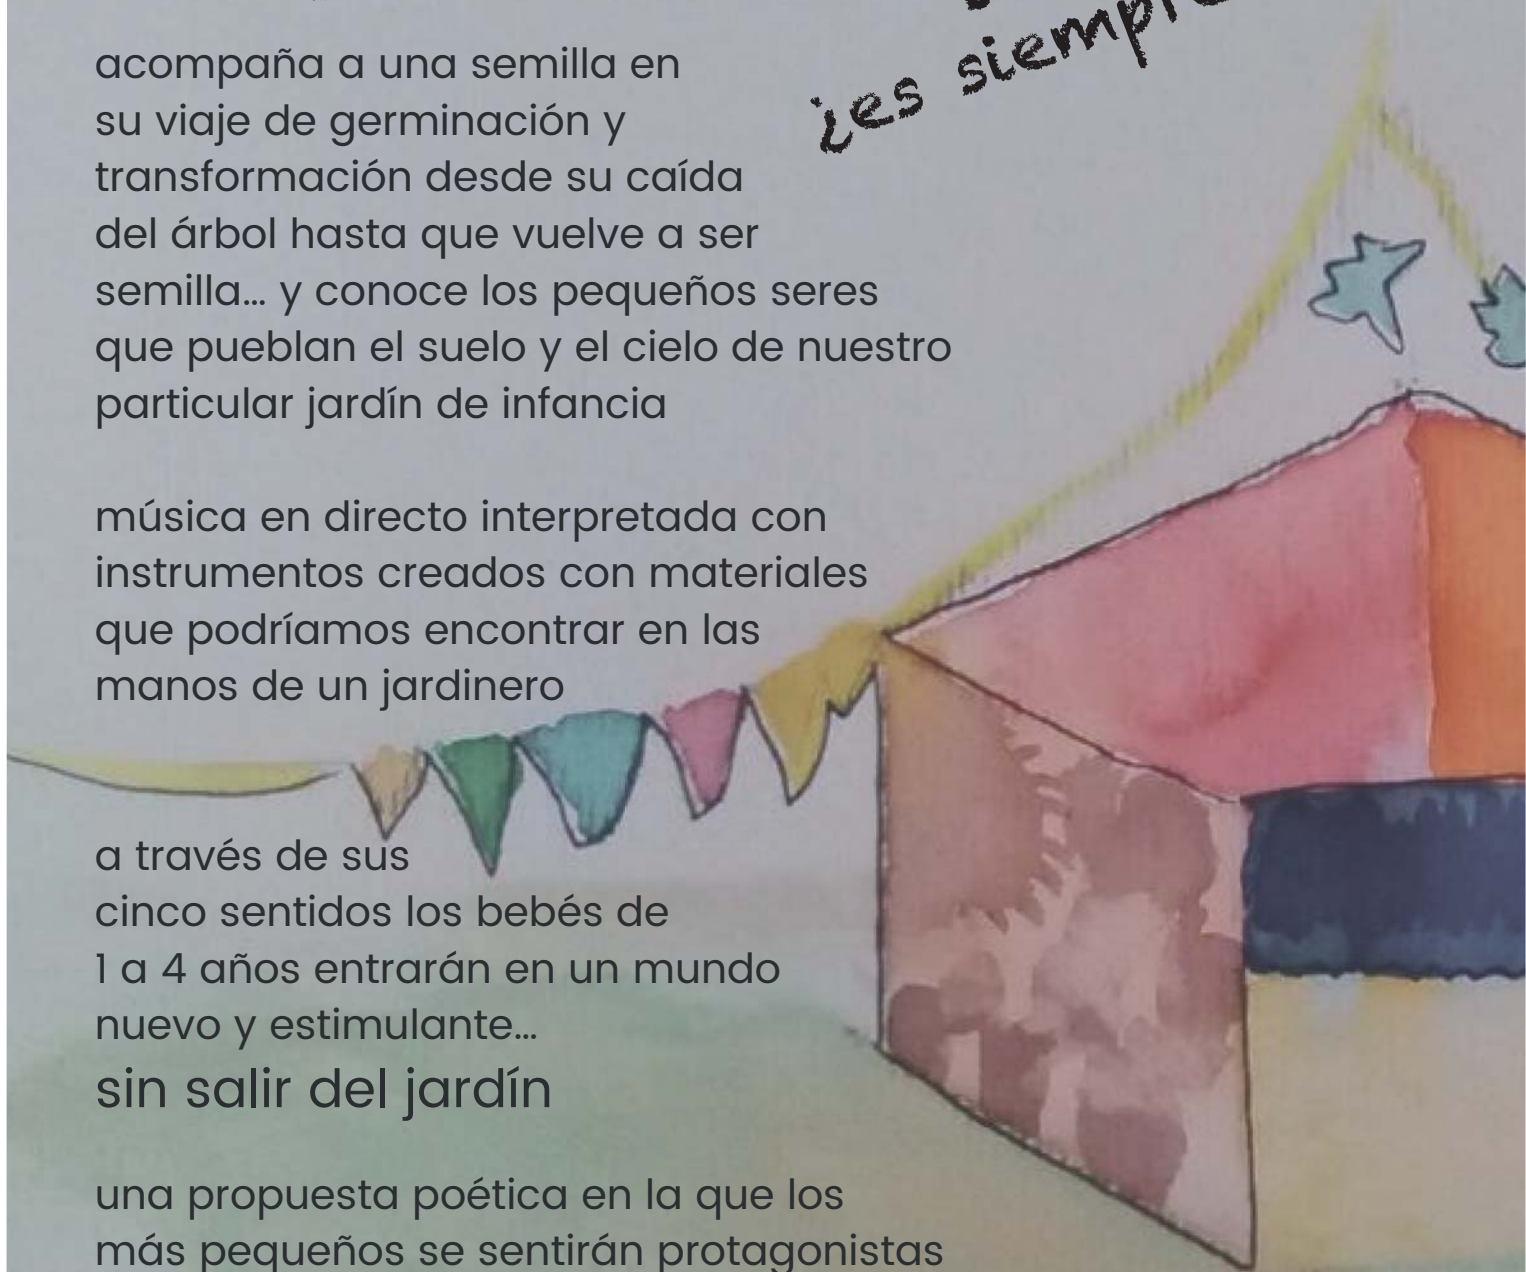 ¿es siempre
acompaña a una semilla en
su viaje de germinación y
transformación desde su caída
del árbol hasta que vuelve a ser
semilla... y conoce los pequeños seres
que pueblan el suelo y el cielo de nuestro
particular jardín de infancia
música en directo interpretada con
instrumentos creados con materiales
que podríamos encontrar en las
manos de un jardinero
a través de sus
cinco sentidos los bebés de
1 a 4 años entrarán en un mundo
nuevo y estimulante...
sin salir del jardín
una propuesta poética en la que los
más pequeños se sentirán protagonistas